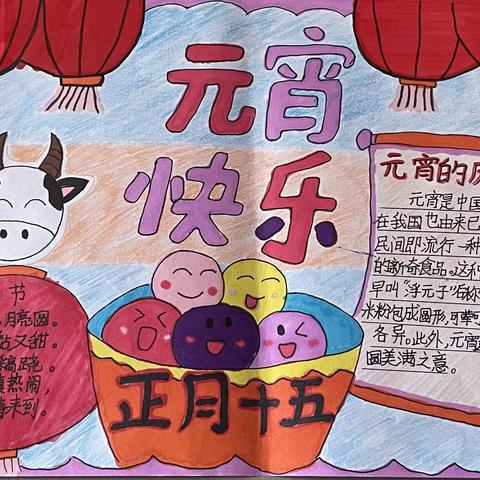 元宵
快乐
节
月亮圆。
又甜。
跷。
热闹，
来到。
正月十五
元宵的
元宵是中国
在我国也由来已
民间即流行一种
的新奇食品。这种
早叫“浮元子”后称
米粉包成圆形，可荤可
各异。此外，元宵
圆美满之意。